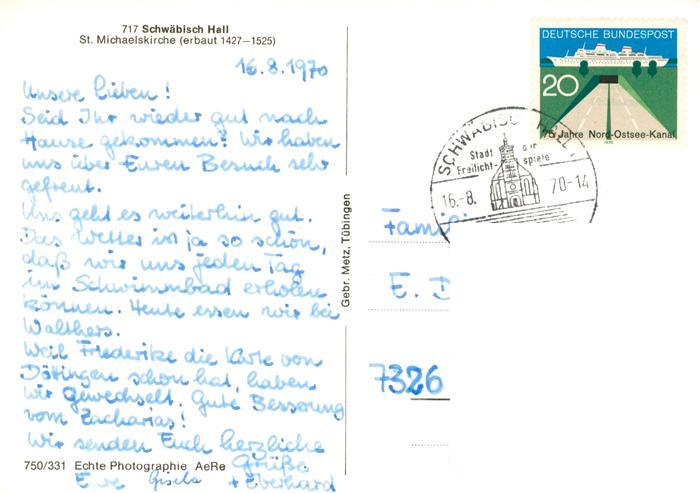 717 Schwäbisch Hall
St. Michaelskirche (erbaut 1427–1525)
16.8.1970
Unsere Lieben!
Seid Ihr wieder gut nach
Hause gekommen? Wir haben
uns über Euren Besuch sehr
gefreut.
Uns geht es weiterhin gut.
Das Wetter ist ja so schön,
daß wir uns jeden Tag
im Schwimmbad erholen
können. Heute essen wir bei
Walthers.
Weil Friederike die Karte von
Döttingen schon hat, haben
wir gewechselt. Gute Besserung
vom Zacharias!
Wir senden Euch herzliche
Grüße
Eure Gisela + Eberhard
750/331 Echte Photographie AeRe
Gebr. Metz, Tübingen
DEUTSCHE BUNDESPOST
20
75 Jahre Nord-Ostsee-Kanal
1970
SCHWÄBISCH HALL
Stadt der
Freilicht- spiele
16.-8. 70-14
Famili
E. D
7326